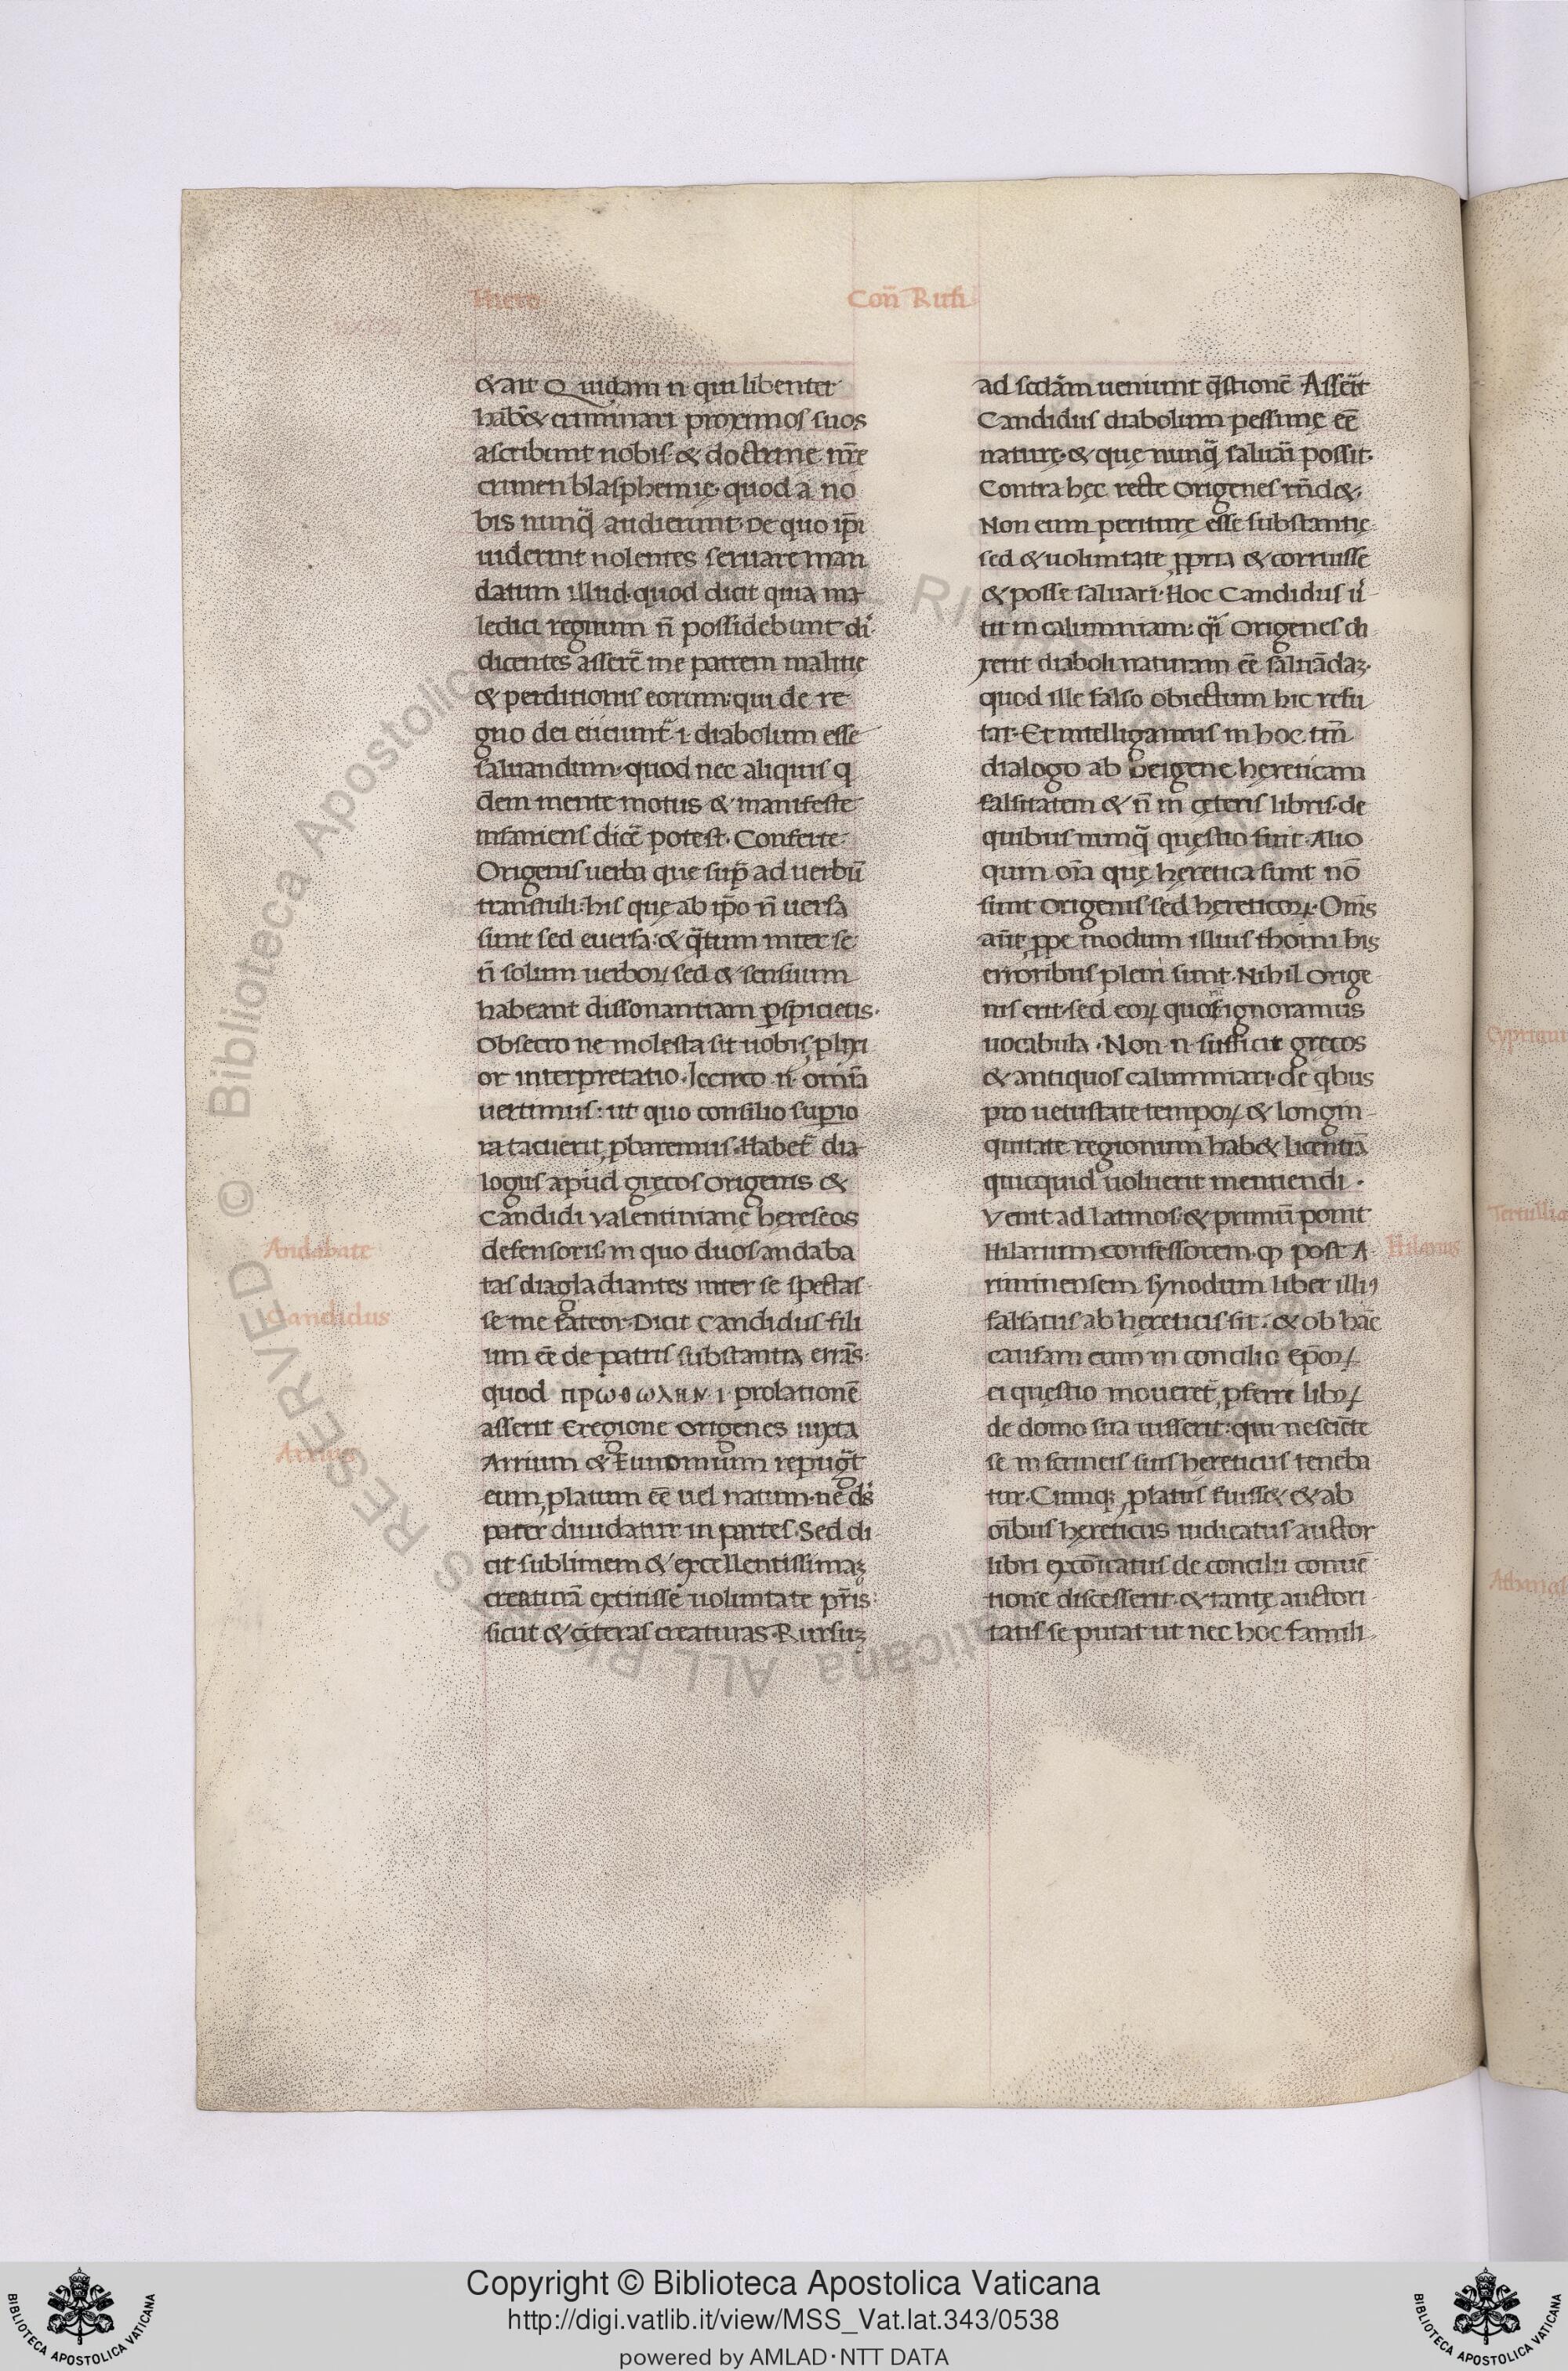 Hiero Con̄ Rufi
& ait Quidam n̄ qui libenter
habēt criminari proximos suos
ascribunt nobis & doctrine nr̄e
crimen blasphemię quod a no
bis nunq̄ audierunt. De quo ip̄i
uiderint nolentes seruare man
datum illud quod dicit quia ma
ledici regnum n̄ possidebunt di
dicentes asserē me patrem malitię
& perditionis eorum: qui de re
gno dei eiciunt̄ .i. diabolum esse
saluandum quod nec aliquis q
dem mente motus & manifeste
insaniens dicē potest. Conferte
Origenis uerba que sup̄ ad uerbū
transtuli. his quę ab ip̄o n̄ uersa
sunt sed euersa: & q̄tum inter se
n̄ solum uerboꝝ sed & sensuum
habeant dissonantiam ꝑspicietis.
Obsecro ne molesta sit uobis ꝓlixi
or interpretatio. Iccirco n̄ omīa
uertimus: ut quo consilio suꝑio
ra tacuerit ꝓbaremus. Habet̄ dia
logus apud gręcos Origenis &
Candidi Valentinianę hereseos
defensoris. in quo duos andaba
tas diagladiantes inter se spectas
se me fateor. Dicit Candidus fili
um eē de patris substantia errās.
quod προθωληνι prolationē
asserit Eregione Origenes iuxta
Arrium & Eunomium repugāt
eum ꝓlatum eē uel natum. ne ds̄
pater diuidatur in partes. Sed di
cit sublimem & excellentissimaꝫ
creaturā extitisse uoluntate pr̄is:
sicut & cęteras creaturas. Rursuꝫ
Andabate
Candidus
Arrius
ad secdām ueniunt q̄stionē. Asserit
Candidus diabolum pessimę eē
naturę. & quę nunq̄ saluāi possit.
Contra hęc recte Origenes rn̄d&.
Non eum periturę esse substantię
sed & uoluntate ꝓpria & corruisse
& posse saluari. Hoc Candidus ū
tit in calumniam: q̄i Origenes di
xerit diaboli naturam eē saluādaꝫ.
quod ille falso obiectum hic refu
tat. Et intelligamus in hoc tm̄
dialogo ab Origene hereticam
falsitatem & n̄ in cęteris libris. de
quibus nunq̄ quęstio fuit. Alio
quin oīa quę hęretica sunt nō
sunt Origenis sed hereticoꝝ. Om̄s
aūt ꝓpe modum illius thomi his
erroribus pleni sunt. Nihil Orige
nis erit. sed eoꝝ quoꝝ ignoramus
uocabula. Non n̄ sufficit gręcos
& antiquos calumniari. de qbus
pro uetustate tempoꝝ & longin
quitate regionum hab& licentiā
quicquid uoluerit mentiendi.
Venit ad latinos. & primū ponit
Hilarium confessorem. qp post A
riminensem synodum liber illiꝰ
falsatus ab hęreticis sit. & ob hāc
causam eum in concilio ep̄oꝝ
ei quęstio moueret̄ ꝓferri liboꝝ
de domo sua iusserit: qui nesciēte
se in scrineis suis hereticus teneba
tur. Cumqꝫ ꝓlatus fuiss& & ab
oībus hęreticus iudicatus auctor
libri excōicatus de concilii conuē
tione discesserit. & tantę auctori
tatis se putat ut nec hoc famili
Hilarius
Tertullia
Copyright © Biblioteca Apostolica Vaticana
http://digi.vatlib.it/view/MSS_Vat.lat.343/0538
powered by AMLAD·NTT DATA
BIBLIOTECA APOSTOLICA VATICANA
BIBLIOTECA APOSTOLICA VATICANA